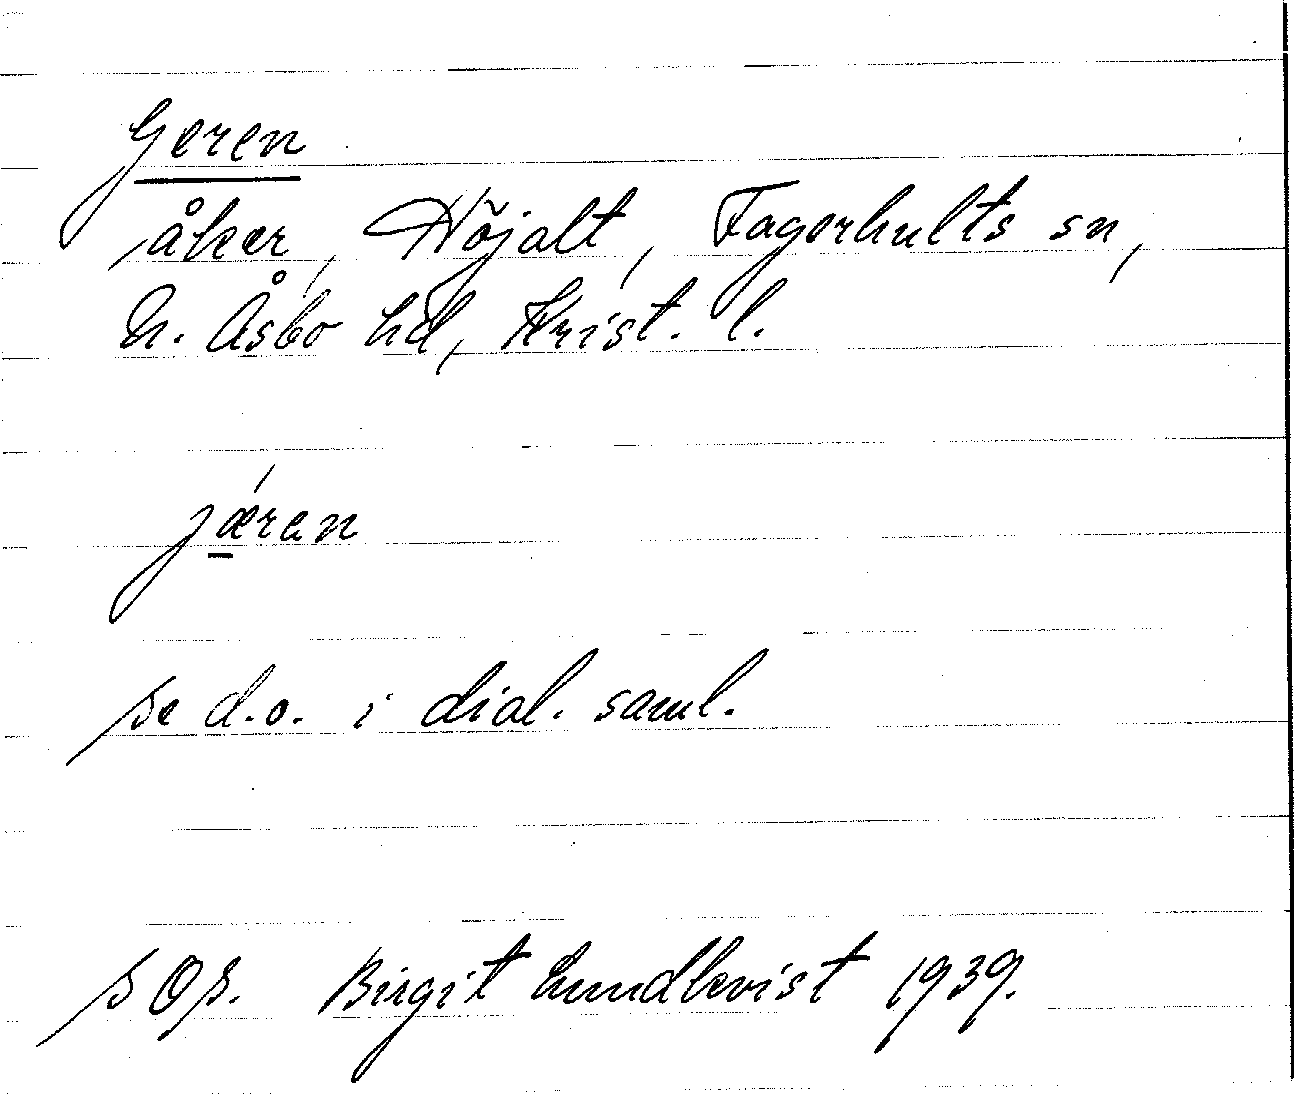 Geren
åker, Höjalt, Fagerhults sn,
N. Åsbo hd, Krist. l.
jǽ̱ran
se d.o. i dial. saml.
s Os. Birgit Lundkvist 1939.